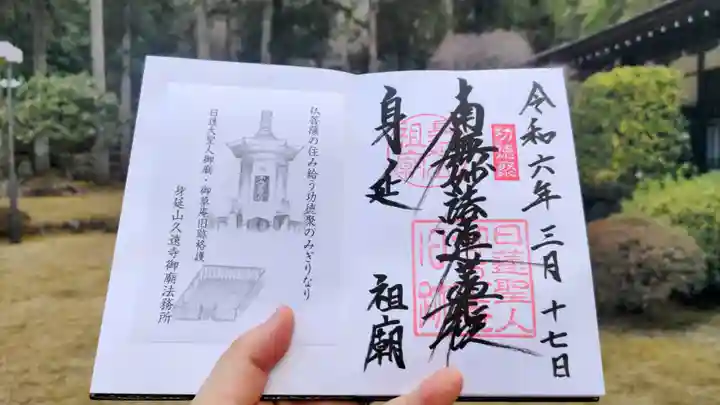 令和六年三月十七日
功徳聚
南無妙法蓮華経
日蓮聖人
身延 祖廟
仏菩薩の住み給う功徳聚のみぎりなり
日蓮大聖人御廟・御草庵旧跡格護
身延山久遠寺御廟法務所